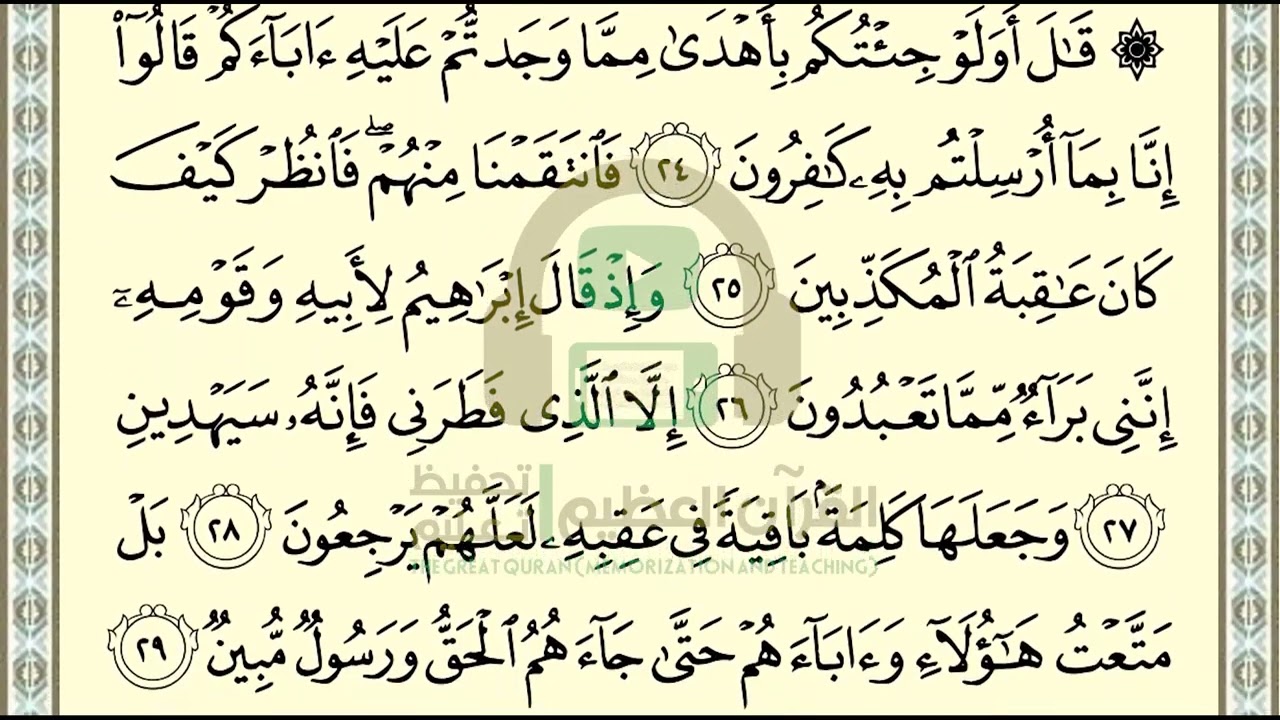 ۞ قَـٰلَ أَوَلَوْ جِئْتُكُم بِأَهْدَىٰ مِمَّا وَجَدتُّمْ عَلَيْهِ ءَابَآءَكُمْ قَالُوٓا۟
إِنَّا بِمَآ أُرْسِلْتُم بِهِۦ كَـٰفِرُونَ ٢٤ فَٱنتَقَمْنَا مِنْهُمْ ۖ فَٱنظُرْ كَيْفَ
كَانَ عَـٰقِبَةُ ٱلْمُكَذِّبِينَ ٢٥ وَإِذْ قَالَ إِبْرَٰهِيمُ لِأَبِيهِ وَقَوْمِهِۦٓ
إِنَّنِى بَرَآءٌ مِّمَّا تَعْبُدُونَ ٢٦ إِلَّا ٱلَّذِى فَطَرَنِى فَإِنَّهُۥ سَيَهْدِينِ
٢٧ وَجَعَلَهَا كَلِمَةًۢ بَاقِيَةً فِى عَقِبِهِۦ لَعَلَّهُمْ يَرْجِعُونَ ٢٨ بَلْ
مَتَّعْتُ هَـٰٓؤُلَآءِ وَءَابَآءَهُمْ حَتَّىٰ جَآءَهُمُ ٱلْحَقُّ وَرَسُولٌ مُّبِينٌ ٢٩
القرآن العظيم | تحفيظ تعليم
THE GREAT QURAN (MEMORIZATION AND TEACHING)